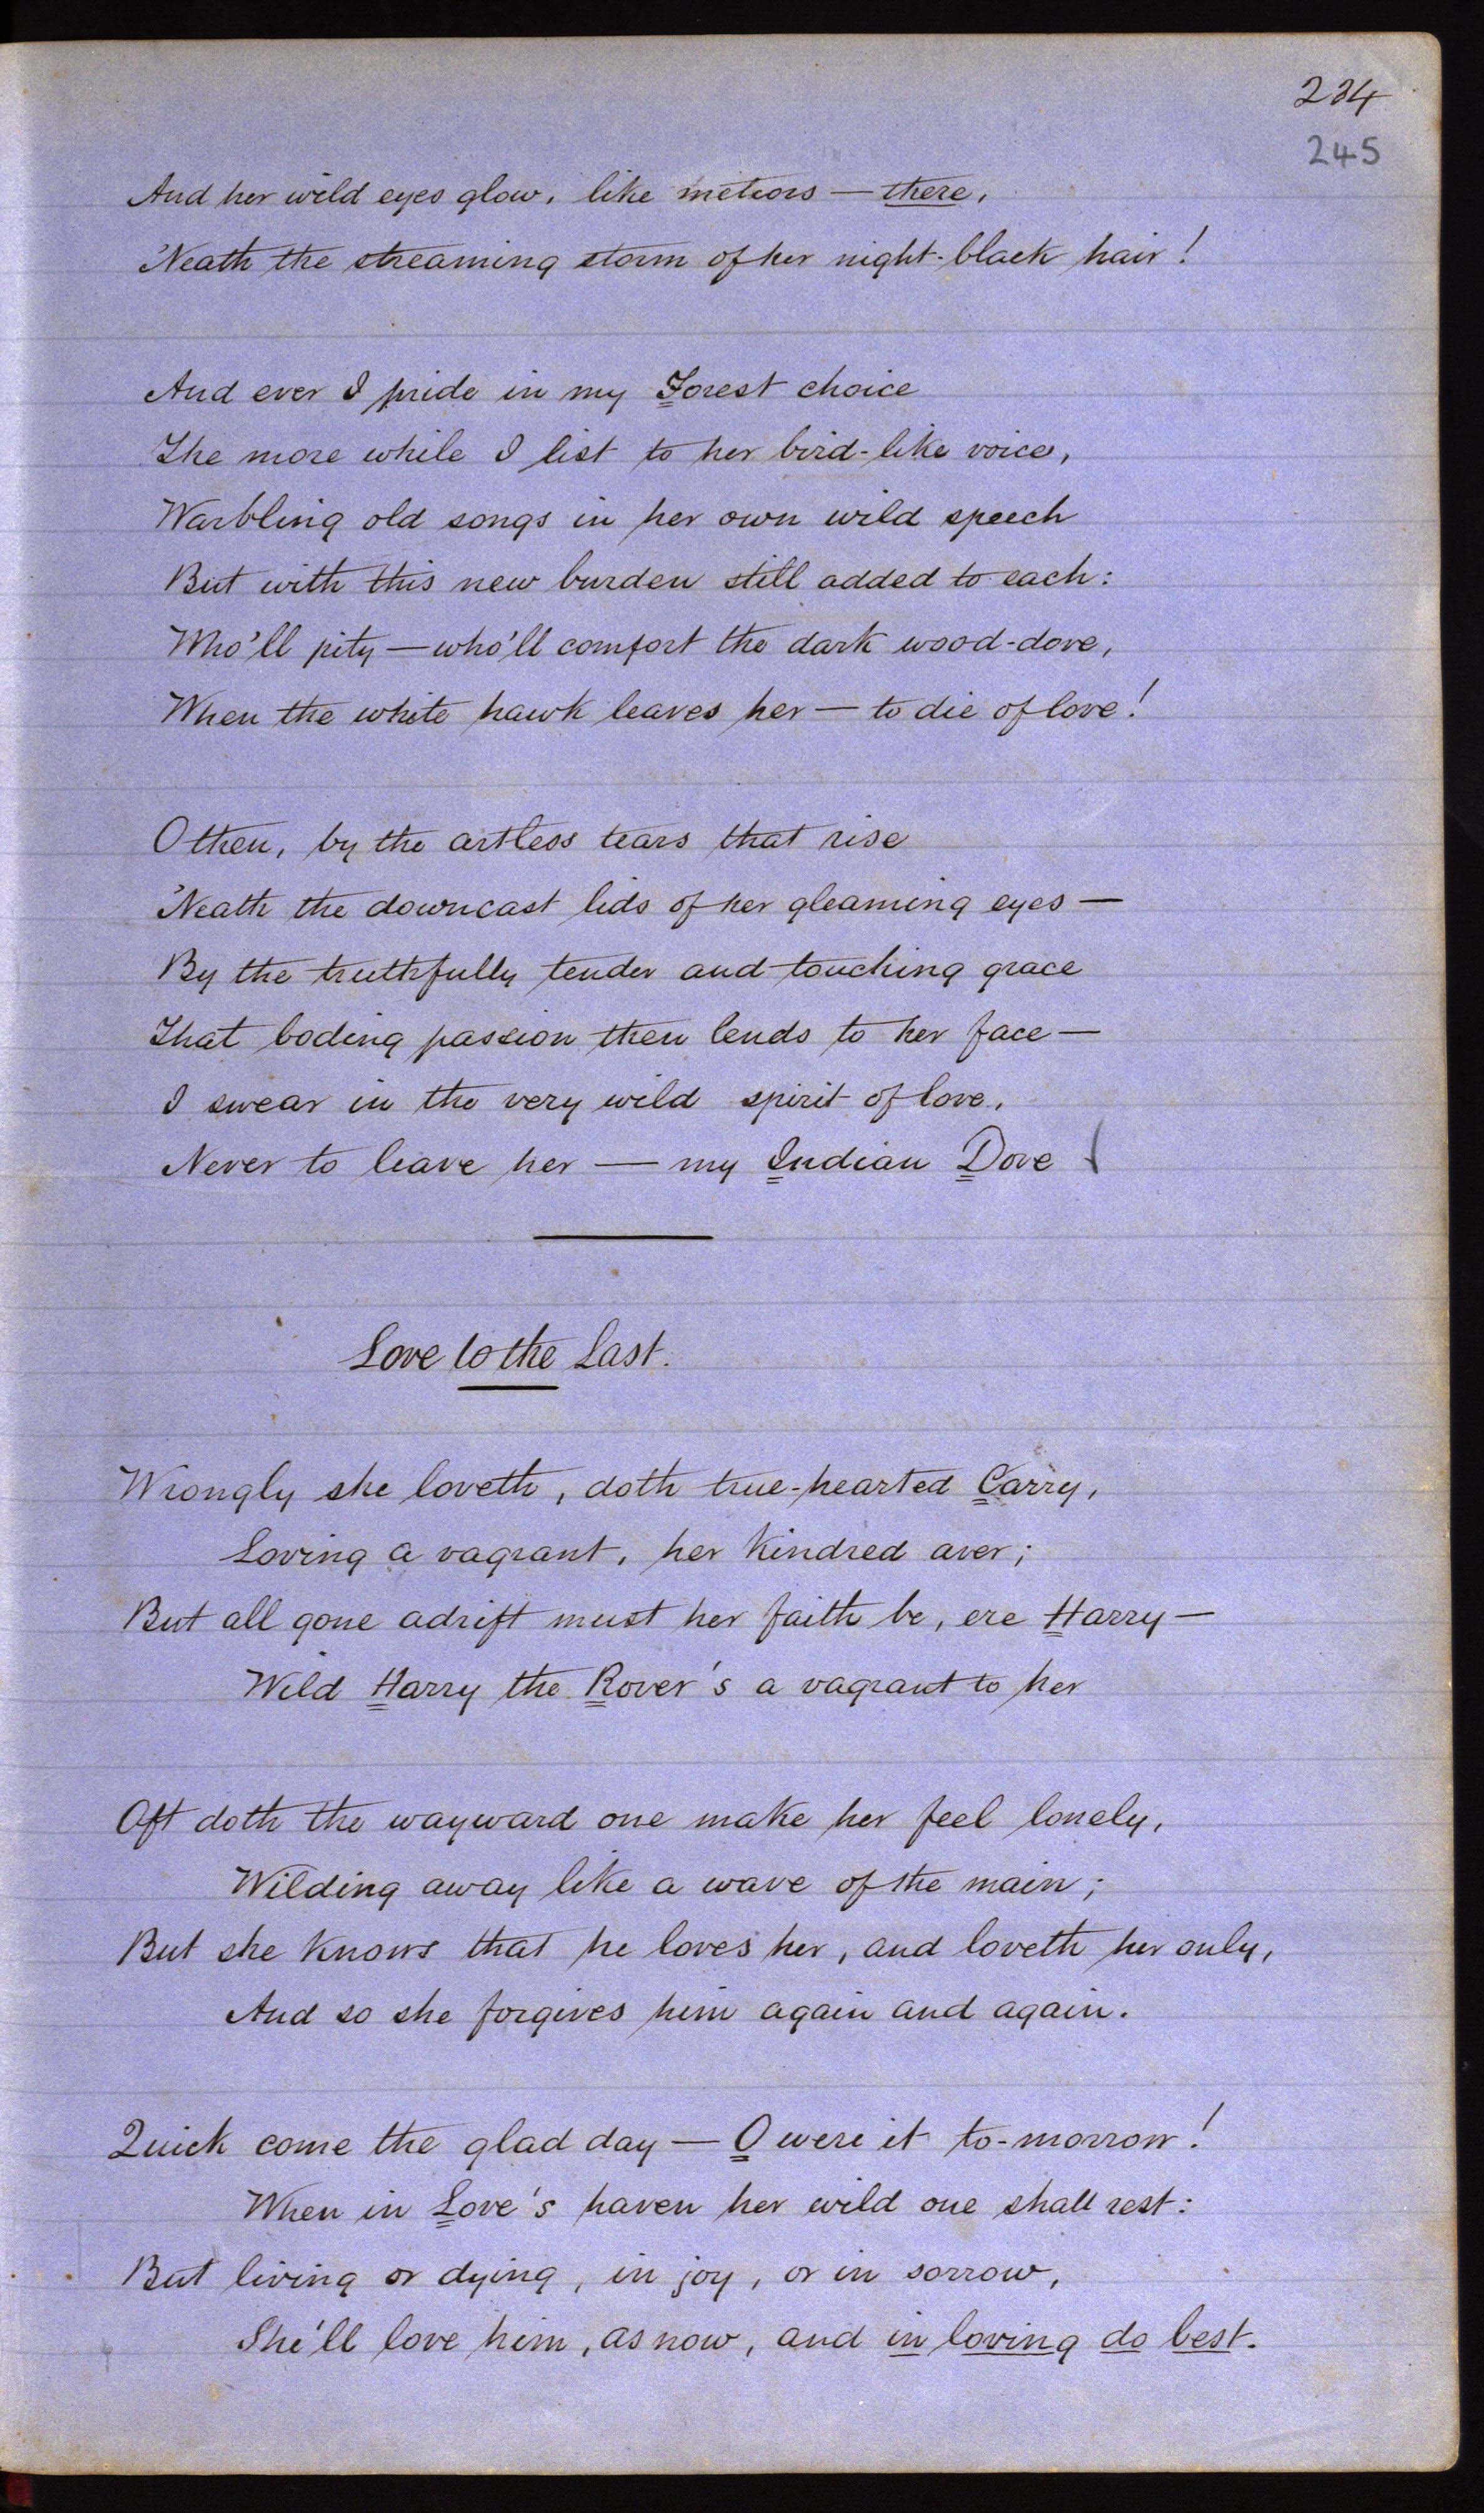 234
245
And her wild eyes glow, like meteors — there,
'Neath the streaming storm of her night-black hair!
And ever I pride in my Forest choice
The more while I list to her bird-like voice,
Warbling old songs in her own wild speech
But with this new burden still added to each:
Who'll pity — who'll comfort the dark wood-dove,
When the white hawk leaves her — to die of love!
O then, by the artless tears that rise
'Neath the downcast lids of her gleaming eyes —
By the truthfully tender and touching grace
That boding passion then lends to her face —
I swear in the very wild spirit of love,
Never to leave her — my Indian Dove
Love to the Last.
Wrongly she loveth, doth true-hearted Carry,
Loving a vagrant, her kindred aver;
But all gone adrift must her faith be, ere Harry —
Wild Harry the Rover's a vagrant to her
Oft doth the wayward one make her feel lonely,
Wilding away like a wave of the main;
But she knows that he loves her, and loveth her only,
And so she forgives him again and again.
Quick come the glad day — O were it to-morrow!
When in Love's haven her wild one shall rest:
But living or dying, in joy, or in sorrow,
She'll love him, as now, and in loving do best.